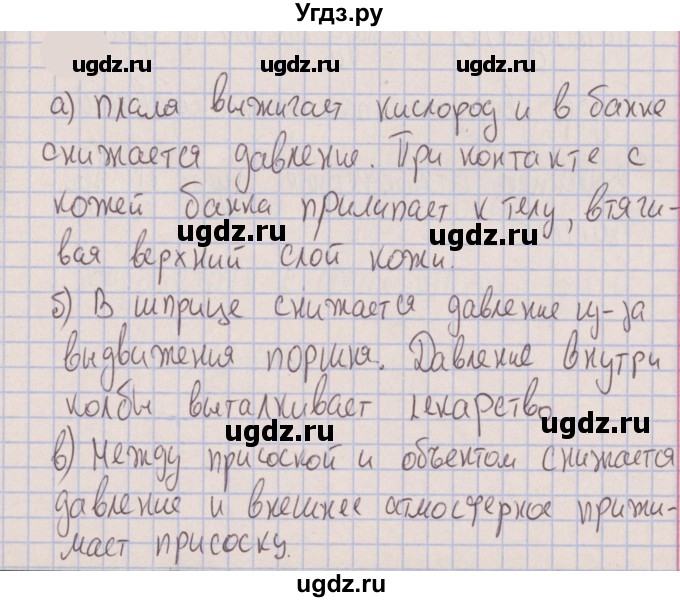 Угдз.ру
ugdz.ru ugdz.ru ugdz.ru
а) плала выжигает кислород и в банке
снижается давление. При контакте с
кожей банка прилипает к телу, втяги-
ugdz.ru ugdz.ru
вая верхний слой кожи.
б) В шприце снижается давление из-за
выдвижения поршня. Давление внутри
колбы выталкивает лекарство
ugdz.ru ugdz.ru
в) Между присоской и объектом снижается
давление и внешнее атмосферное прижи-
мает присоску.
ugdz.ru